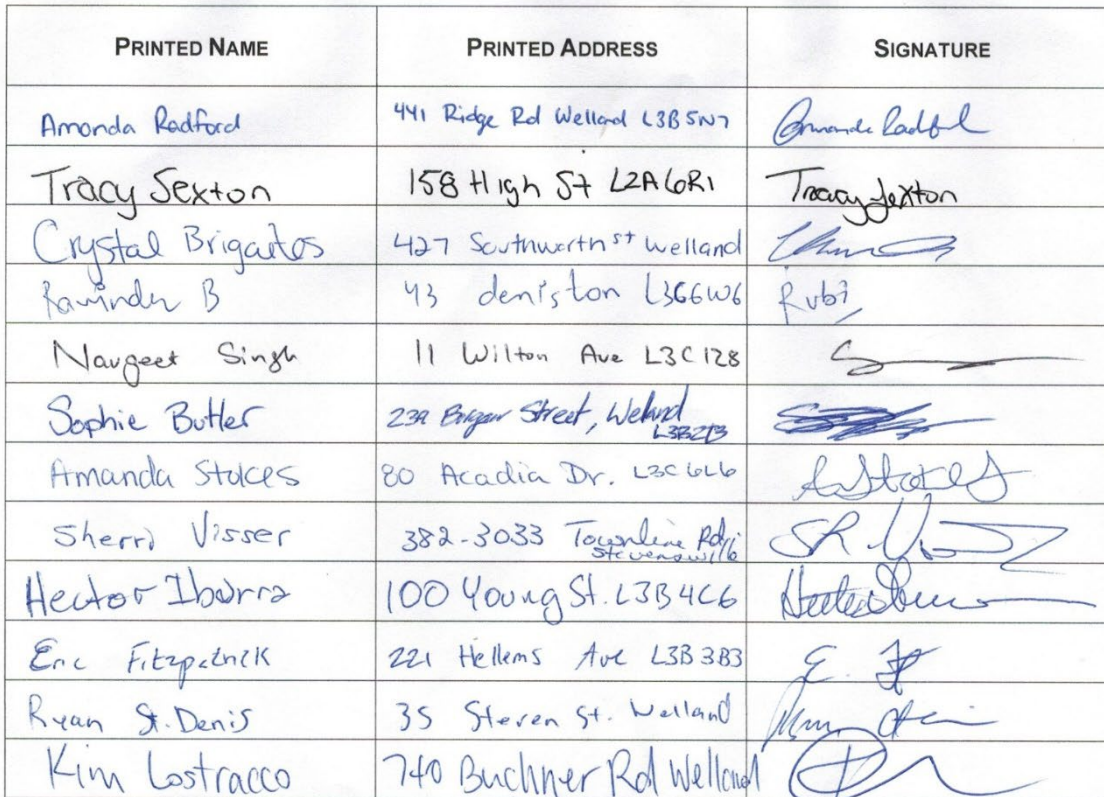 PRINTED NAME PRINTED ADDRESS SIGNATURE
Amanda Radford 441 Ridge Rd Welland L3B5N7 Amanda Radford
Tracy Sexton 158 High St L2A6R1 Tracy Sexton
Crystal 427 Southworth st Welland
Ravinder B 43 deniston L3G6W6 Rubi
Navgeet Singh 11 Wilton Ave L3C128
Sophie Butler Street, Welland
Amanda Stokes 80 Acadia Dr. L3C6L6 A Stokes
Sherri Visser 382-3033 Townline Rd
Stevensville
Hector Ibarra 100 Young St. L3B4C6
Eric Fitzpatrick 221 Hellems Ave L3B3B3 E. F
Ryan St. Denis 35 Steven St. Welland
Kim Lostracco 740 Buchner Rd Welland